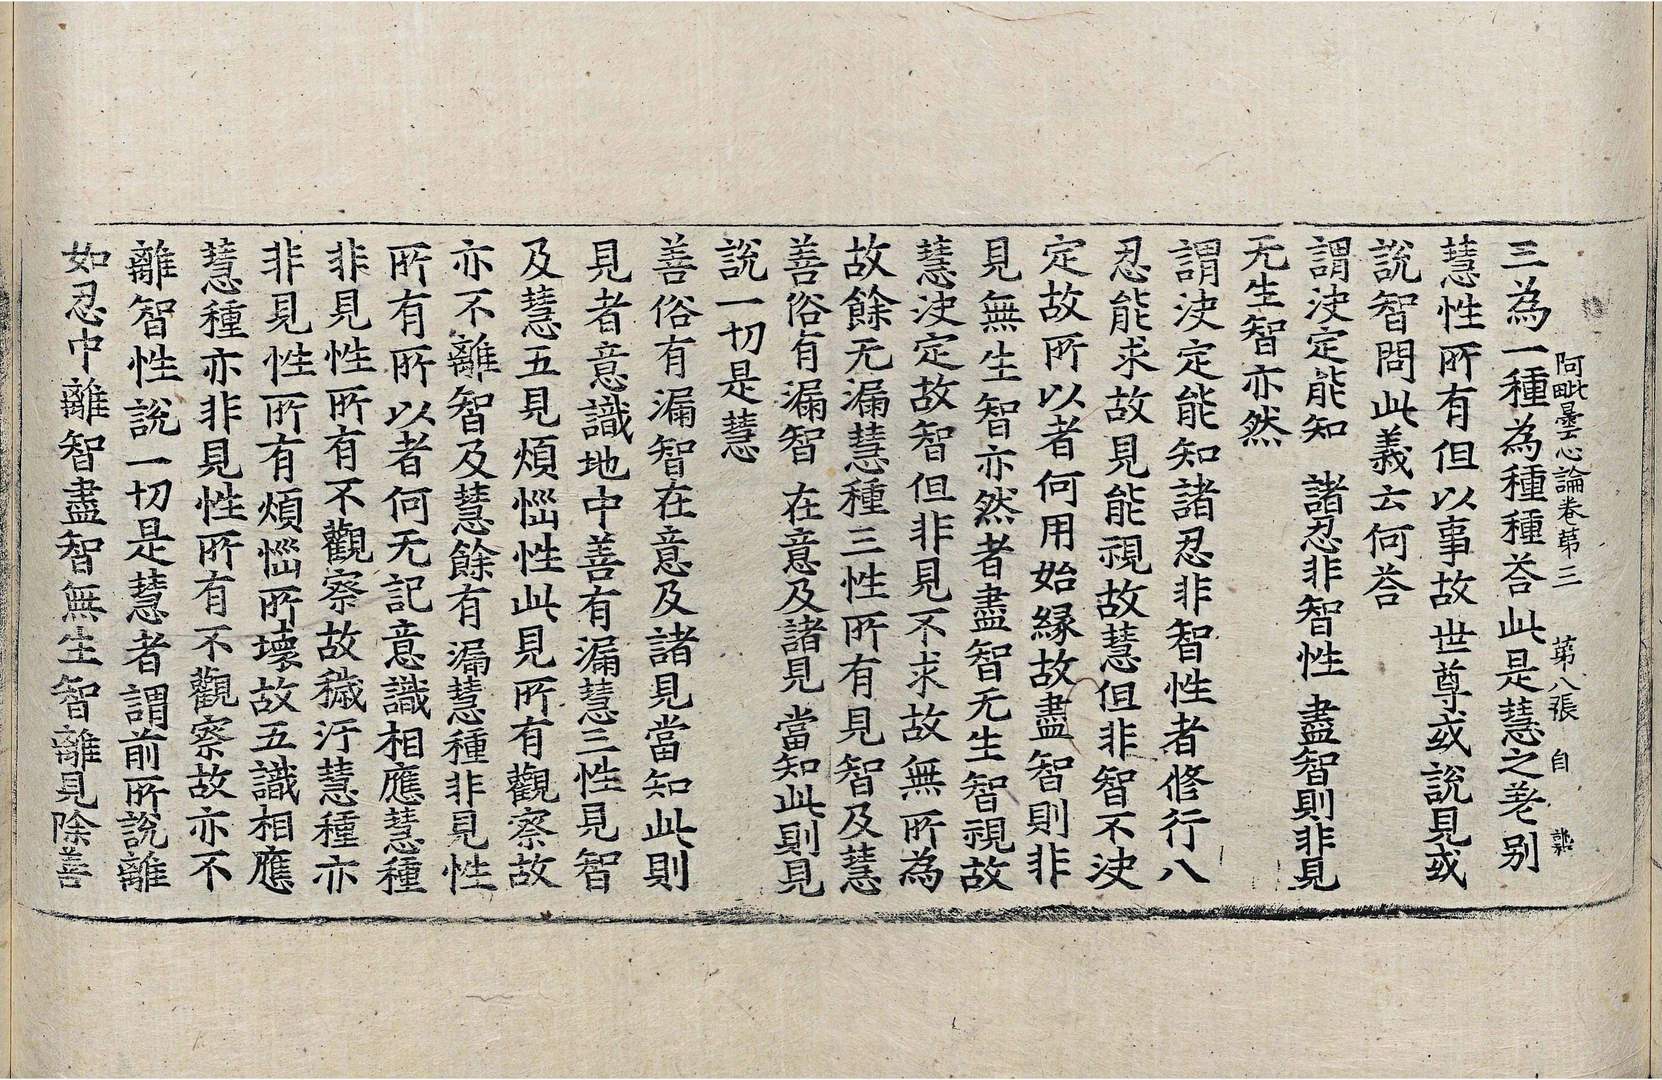 阿毗曇心論卷第三　第八張　自
三為一種為種種荅此是慧之差别
慧性所有但以事故世尊或說見或
說智問此義云何荅
謂决定能知　諸忍非智性　盡智則非見
无生智亦然
謂决定能知諸忍非智性者修行八
忍能求故見能視故慧但非智不决
定故所以者何用始緣故盡智則非
見無生智亦然者盡智无生智視故
慧决定故智但非見不求故無所為
故餘无漏慧種三性所有見智及慧
善俗有漏智　在意及諸見　當知此則見
說一切是慧
善俗有漏智在意及諸見當知此則
見者意識地中善有漏慧三性見智
及慧五見煩惱性此見所有觀察故
亦不離智及慧餘有漏慧種非見性
所有所以者何无記意識相應慧種
非見性所有不觀察故穢汙慧種亦
非見性所有煩惱所壞故五識相應
慧種亦非見性所有不觀察故亦不
離智性說一切是慧者謂前所說離
如忍中離智盡智無生智離見除善